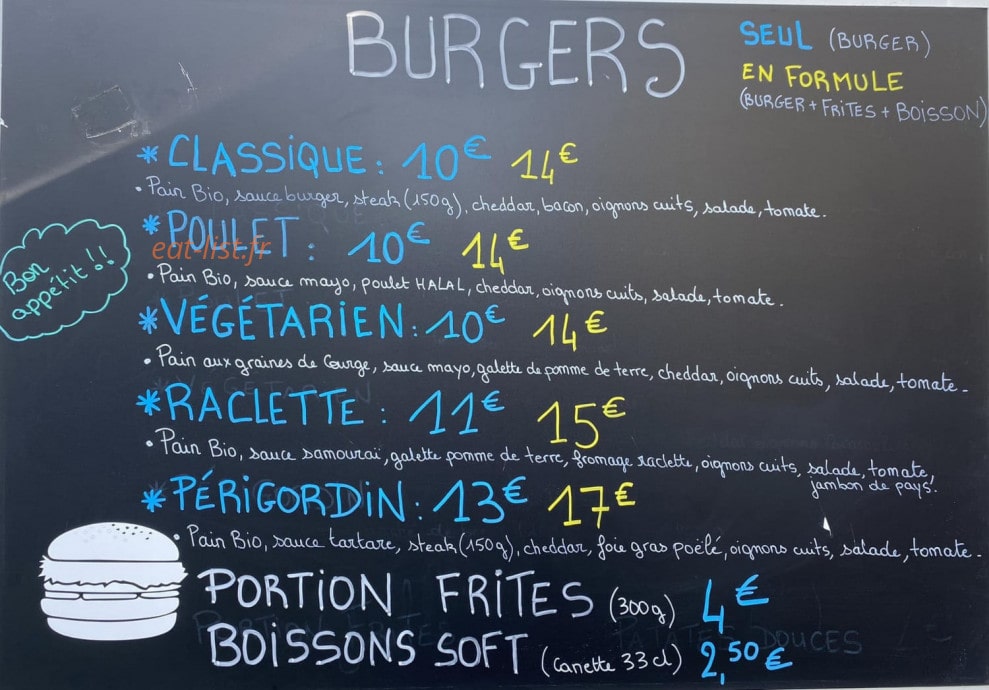 BURGERS
SEUL (BURGER)
EN FORMULE
(BURGER + FRITES + BOISSON)
* CLASSIQUE : 10€ 14€
• Pain Bio, sauce burger, steak (150g), cheddar, bacon, oignons cuits, salade, tomate.
* POULET : 10€ 14€
eat-list.fr
• Pain Bio, sauce mayo, poulet HALAL, cheddar, oignons cuits, salade, tomate.
Bon
appétit!!
* VÉGÉTARIEN : 10€ 14€
• Pain aux graines de Courge, sauce mayo, galette de pomme de terre, cheddar, oignons cuits, salade, tomate -
* RACLETTE : 11€ 15€
• Pain Bio, sauce samouraï, galette pomme de terre, fromage raclette, oignons cuits, salade, tomate,
jambon de pays!
* PÉRIGORDIN : 13€ 17€
• Pain Bio, sauce tartare, steak (150g), cheddar, foie gras poëlé, oignons cuits, salade, tomate -
PORTION FRITES (300g) 4€
BOISSONS SOFT (Canette 33cl) 2,50€